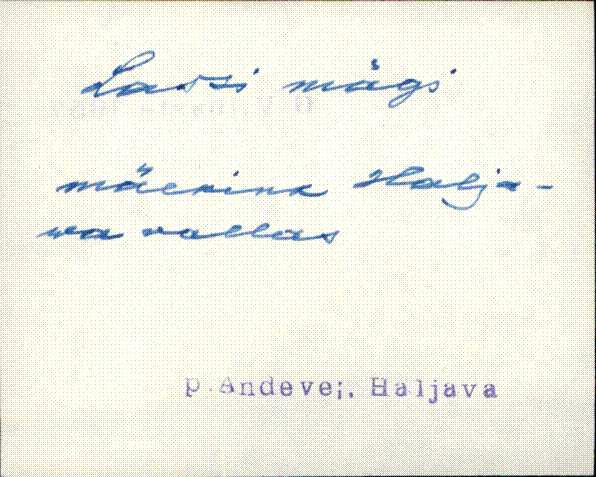 Lassi mägi
mäerink Halja-
va vallas
p.Andevei, Haljava